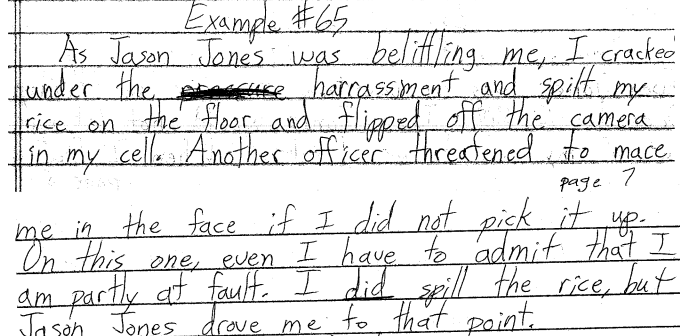 Example #65
As Jason Jones was belittling me, I cracked
under the harrassment and spilt my
rice on the floor and flipped off the camera
in my cell. Another officer threatened to mace
page 7
me in the face if I did not pick it up.
On this one, even I have to admit that I
am partly at fault. I did spill the rice, but
Jason Jones drove me to that point.